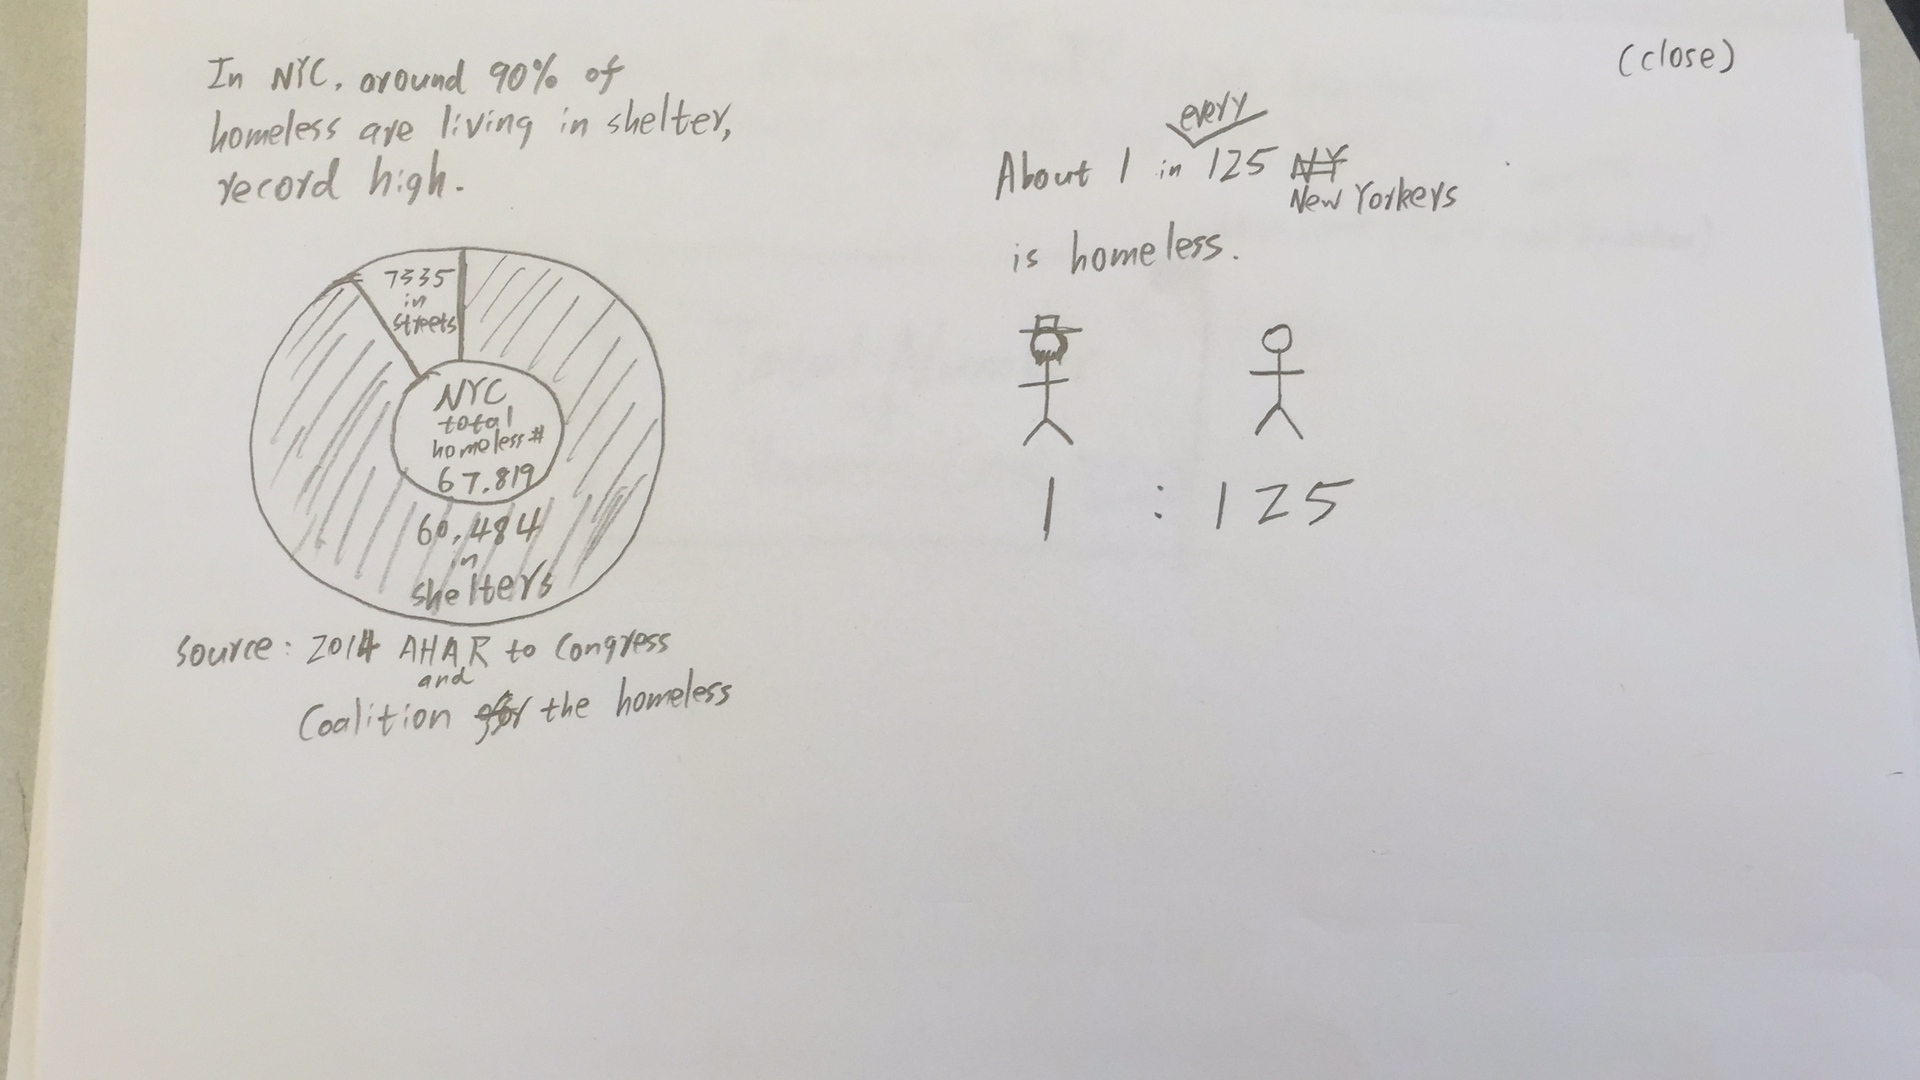 In NYC, around 90% of
homeless are living in shelter,
record high.
7335
in
streets
NYC
total
homeless#
67.819
60.484
in
shelters
Source: 2014 AHAR to Congress
and
Coalition for the homeless
(close)
every
About 1 in 125 NY
New Yorkers
is homeless.
1 : 125